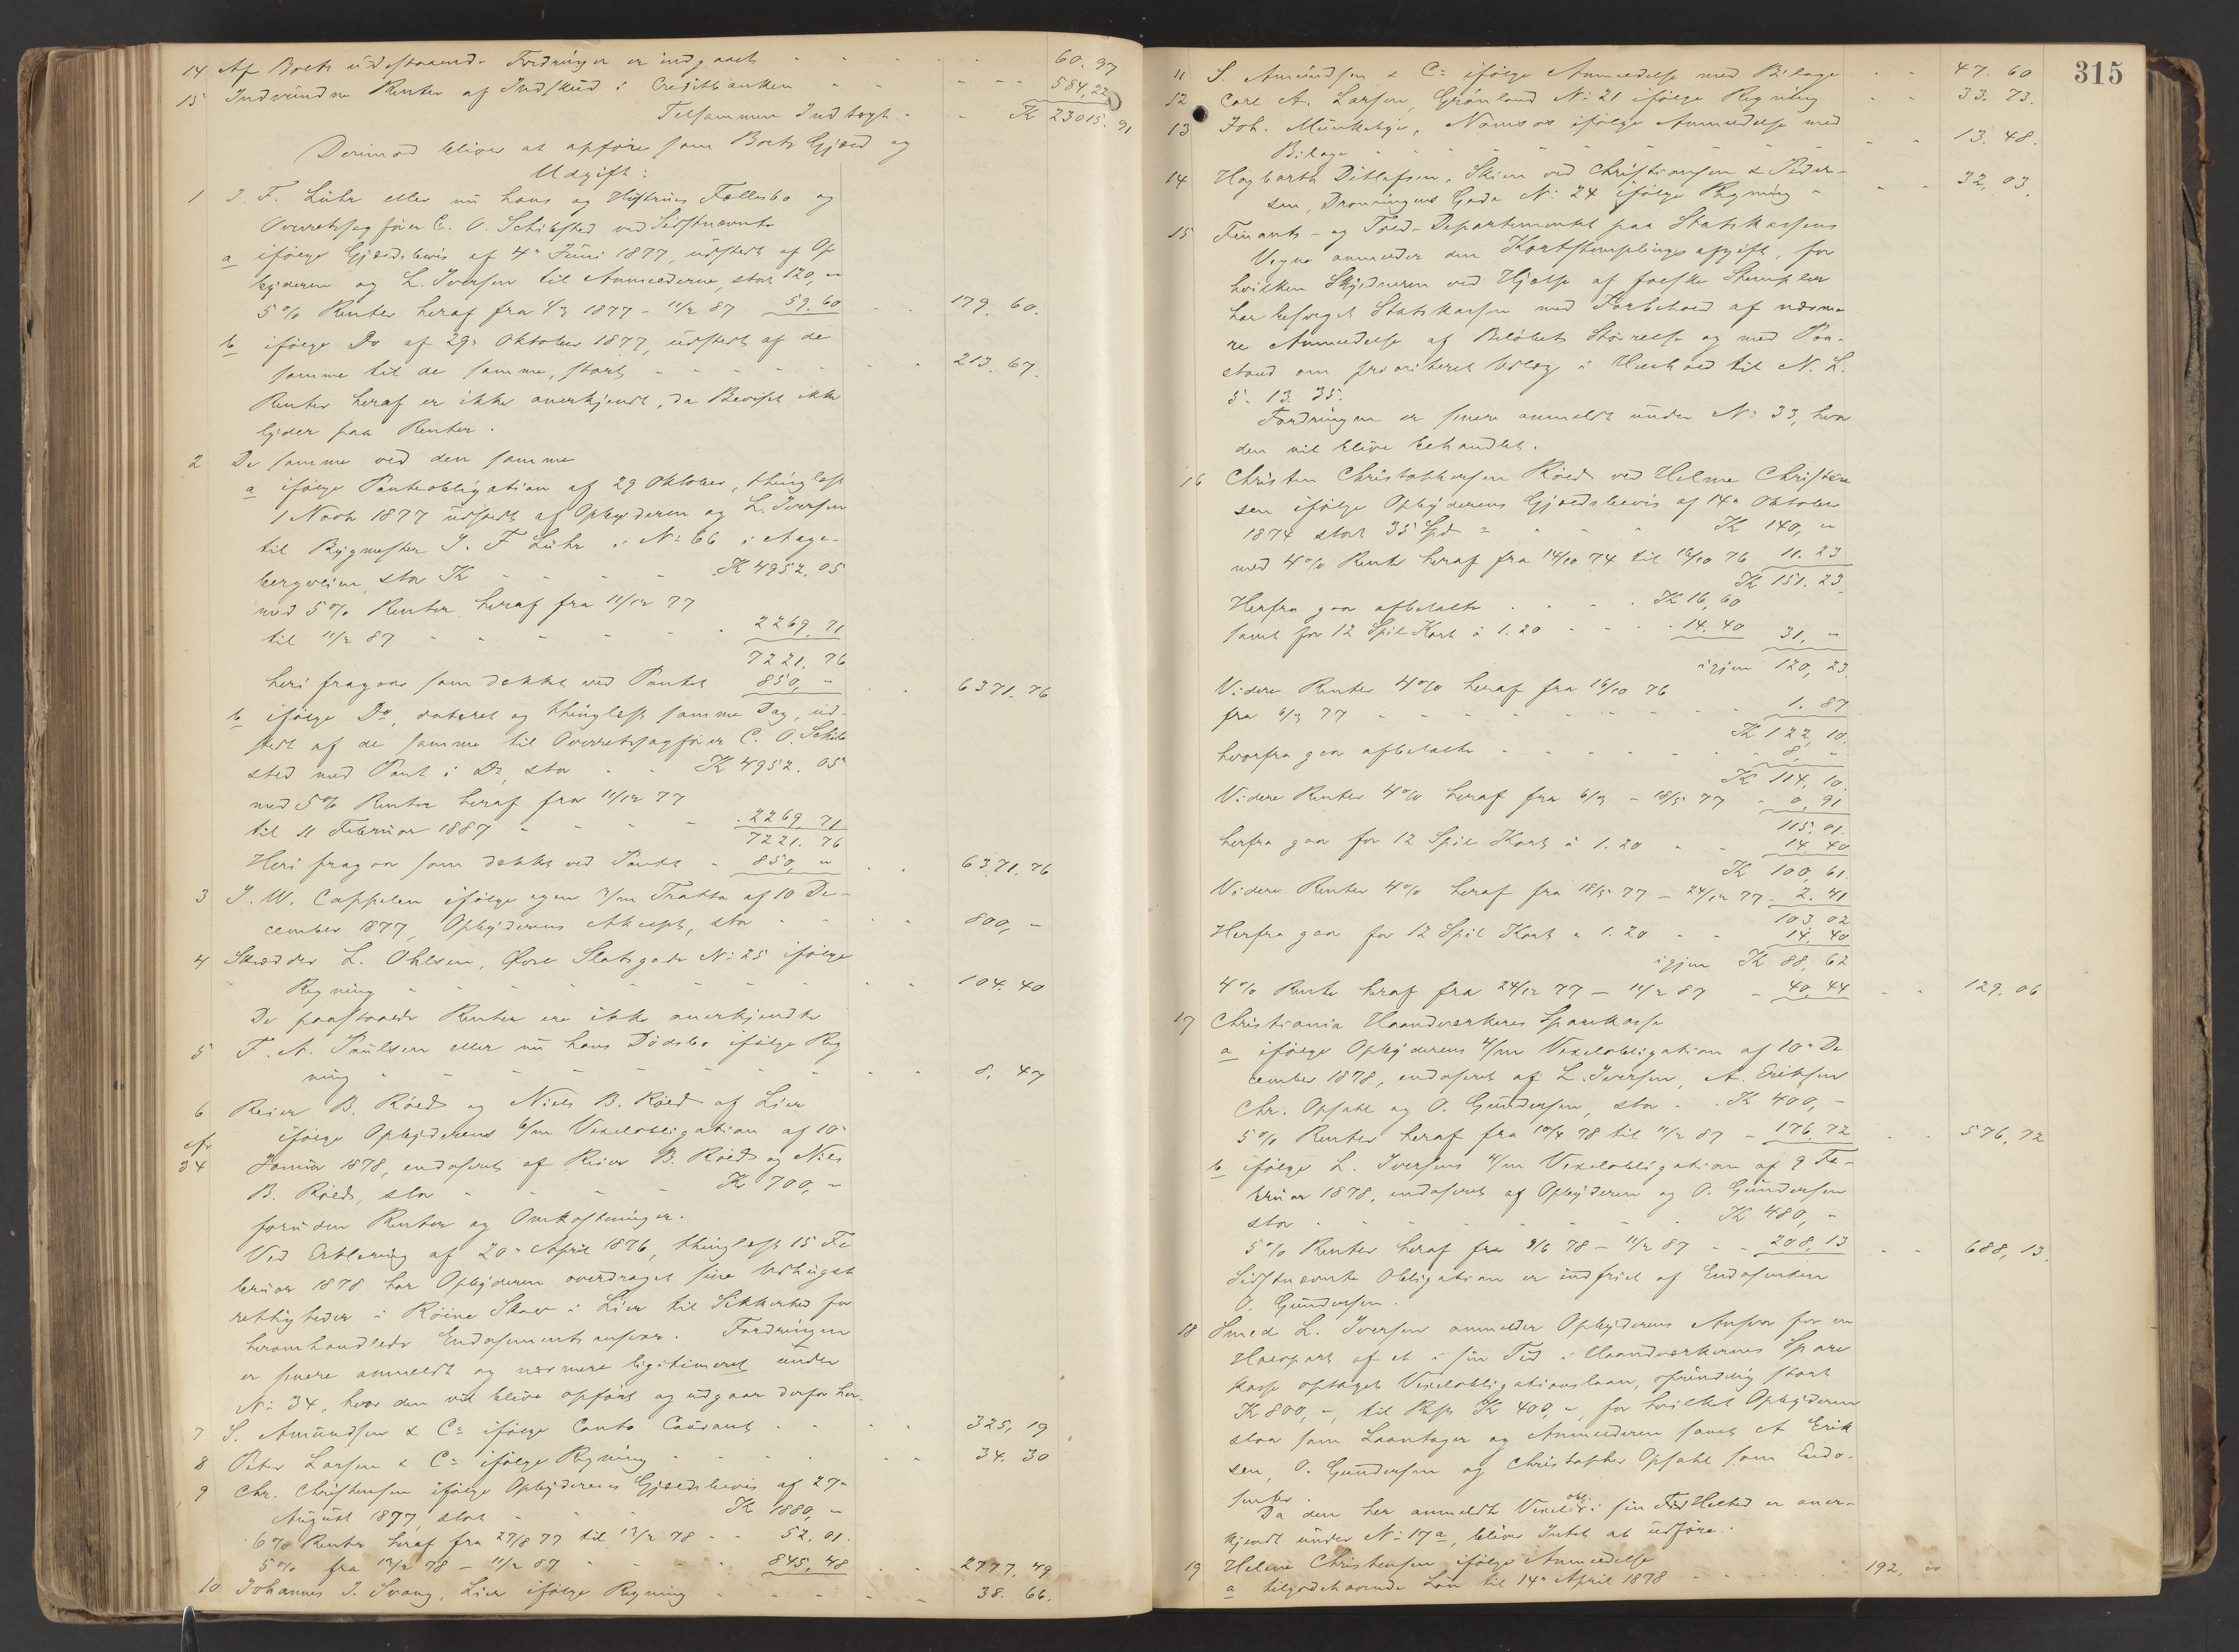 14 Af Boets udestaaende Fordringer er indgaaet - - - - - 60. 97
15 Indvundne Renter af Indskud i Creditbanken - - - - - 584,22
Tilsammen Indtægt - - K 23015. 91
Derimod bliver at opføre som Boets Gjæld og
Udgift:
1 I. F. Lühr eller nu hans og Hustrues Fællesbo og
Overretssagfører C. O. Schibsted ved Sidstnævnte
a ifølge Gjældsbevis af 4de Juni 1877, udstedt af Op
byderen og L. Iversen til Anmelderne, stort 120, "
5 % Renter heraf fra 4/3 1877 - 11/2 87 59. 60 - - 179. 60.
b ifølge Do af 29de Oktober 1877, udstedt af de
samme til de samme, stort - - - - - 213. 67.
Renter heraf er ikke anerkjendt, da Beviset ikke
lyder paa Renter.
2 De samme ved den samme
a ifølge Panteobligation af 29 Oktober, thinglæst
1 Novbr 1877 udstedt af Opbyderen og L. Iversen
til Bygmester I. F Lühr i No 66 i Aage-
bergveien, stor K - - - - K 4952. 05
med 5 % Renter heraf fra 11/12 77
til 11/2 87 - - - - - - 2269. 71
7221. 76
heri fragaar som dækket ved Pantet 850, " - - 6371. 76
b ifølge Do, dateret og thinglæst samme Dag, ud-
stedt af de samme til Overretssagfører C. O. Schib
sted med Pant i Do, stor - - K 4952. 05
med 5 % Renter heraf fra 11/12 77
til 11 Februar 1887 - - - - 2269, 71
7221. 76
Heri fragaar som dækket ved Pantet - 850, " - - 6371. 76
3 I. W. Cappelen ifølge egen 3/m Tratta af 10 De-
cember 1877, Opbyderens Akcept, stor - - - - 800, -
4 Skrædder L. Ohlsen, Øvre Slotsgade No 25 ifølge
Regning - - - - - - - - - 104. 40
De paastaaede Renter ere ikke anerkjendte
5 F. A. Paulsen eller nu hans Dødsbo ifølge Reg
ning - - - - - - - - - 8. 47
6 Reier B. Røed og Niels B. Røed af Lier
cfr ifølge Opbyderens 6/m Vexelobligation af 10de
34 Januar 1878, endosseret af Reier B. Røed og Niels
B. Røed, stor - - - - K 700, -
foruden Renter og Omkostninger.
Ved Erklæring af 20de April 1876, thinglæst 15 Fe
bruar 1878 har Opbyderen overdraget sine Udhugst
rettigheder i Røine Skov i Lier til Sikkerhed for
heromhandlede Endossementsansvar. Fordringen
er senere anmeldt og nærmere ligitimeret under
No 34, hvor den vil blive opført og udgaar derfor her.
7 S. Amundsen & Co ifølge Conto Courant - - - - 325, 19
8 Peter Larsen & Co ifølge Regning - - - - - 34. 30
9 Chr. Christensen ifølge Opbyderens Gjældsbevis af 27de
August 1877, stort - - - - K 1880, "
6 % Rente heraf fra 27/8 77 til 13/2 78 - - 52. 01.
5 % fra 13/2 78 - 11/2 87 - - - - 845, 48 - - 2777, 49
10 Johannes I. Svang, Lier ifølge Regning - - - - - 38. 66.
315
11 S. Amundsen & Co ifølge Anmeldelse med Bilage - - 47. 60
12 Carl A. Larsen, Grønland No 21 ifølge Regning - - 33. 73.
13 Joh. Munkebye, Namsos ifølge Anmeldelse med
Bilage - - - - - - - - - 13. 48.
14 Hagbarth Ditlefsen, Skien ved Christiansen & Peder-
sen, Dronningens Gade No 24 ifølge Regning - - - 32, 03.
15 Finants- og Told-Departementet paa Statskassens
Vegne anmelder den Kortstemplingsafgift, for
hvilken Skyldneren ved Hjælp af falske Stempler
har besveget Statskassen med Forbehold af nærme-
re Anmeldelse af Beløbets Størrelse og med Paa-
stand om prioriteret Udlæg i Henhold til N. L.
5. 13. 35.
Fordringen er senere anmeldt under No 33, hvor
den vil blive behandlet.
16 Christen Christophersen Røed ved Helene Christen
sen ifølge Opbyderens Gjældsbevis af 14de Oktober
1874 stort 35 Spd = - - K 140, "
med 4 % Rente heraf fra 14/10 74 til 16/10 76 11. 23
K 151. 23.
Herfra gaar afbetalt - - - K 16, 60
samt for 12 Spil Kort à 1. 20 - - - 14. 40 31, "
igjen 120, 23.
Videre Renter 4 % heraf fra 16/10 76
fra 6/3 77 - - - - - - - - 1. 87
K 122, 10.
hvorfra gaar afbetalt - - - - - - 8, "
K 114, 10.
Videre Renter 4 % heraf fra 6/3 - 18/5 77 - 0, 91
115. 01.
herfra gaar for 12 Spil Kort à 1. 20 - - 14, 40
K 100, 61.
Videre Renter 4 % heraf fra 18/5 77 - 24/12 77 - 2. 41
103, 02
Herfra gaar for 12 Spil Kort à 1. 20 - - 14, 40
igjen K 88, 62
4 % Rente heraf fra 24/12 77 - 11/2 87 - 40, 44 - - 129. 06
17 Christiania Haandværkeres Sparekasse
a ifølge Opbyderens 4/m Vexelobligation af 10de De
cember 1878, endosseret af L. Iversen, A. Eriksen
Chr. Opsahl og O. Gundersen, stor - - K 400, -
5 % Renter heraf fra 10/4 78 til 11/2 87 - 176. 72 - - 576. 72
b ifølge L. Iversens 4/m Vexelobligation af 9 Fe-
bruar 1878, endosseret af Opbyderen og O. Gundersen
stor - - - - - - K 480, "
5 % Renter heraf fra 9/6 78 - 11/2 87 - - 208, 13 - - 688, 13.
Sidstnævnte Obligation er indfriet af Endossenten
O. Gundersen.
18 Smed L. Iversen anmelder Opbyderens Ansvar for en
Halvpart af et i sin Tid i Haandværkernes Spare
kasse optaget Vexelobligationslaan, oprindelig stort
K 800, ", til Rest K 400, ", for hvilket Opbyderen
staar som Laantager og Anmelderen samt A Erik
sen, O. Gundersen og Christopher Opsahl som Endo-
senter.
Da den her anmeldte Vexelobl. i sin Helhed er aner-
kjendt under No 17a, bliver Intet at udføre.
19 Helene Christensen ifølge Anmeldelse
a tilgodehavende Løn til 14de April 1878 - - - - 192, "